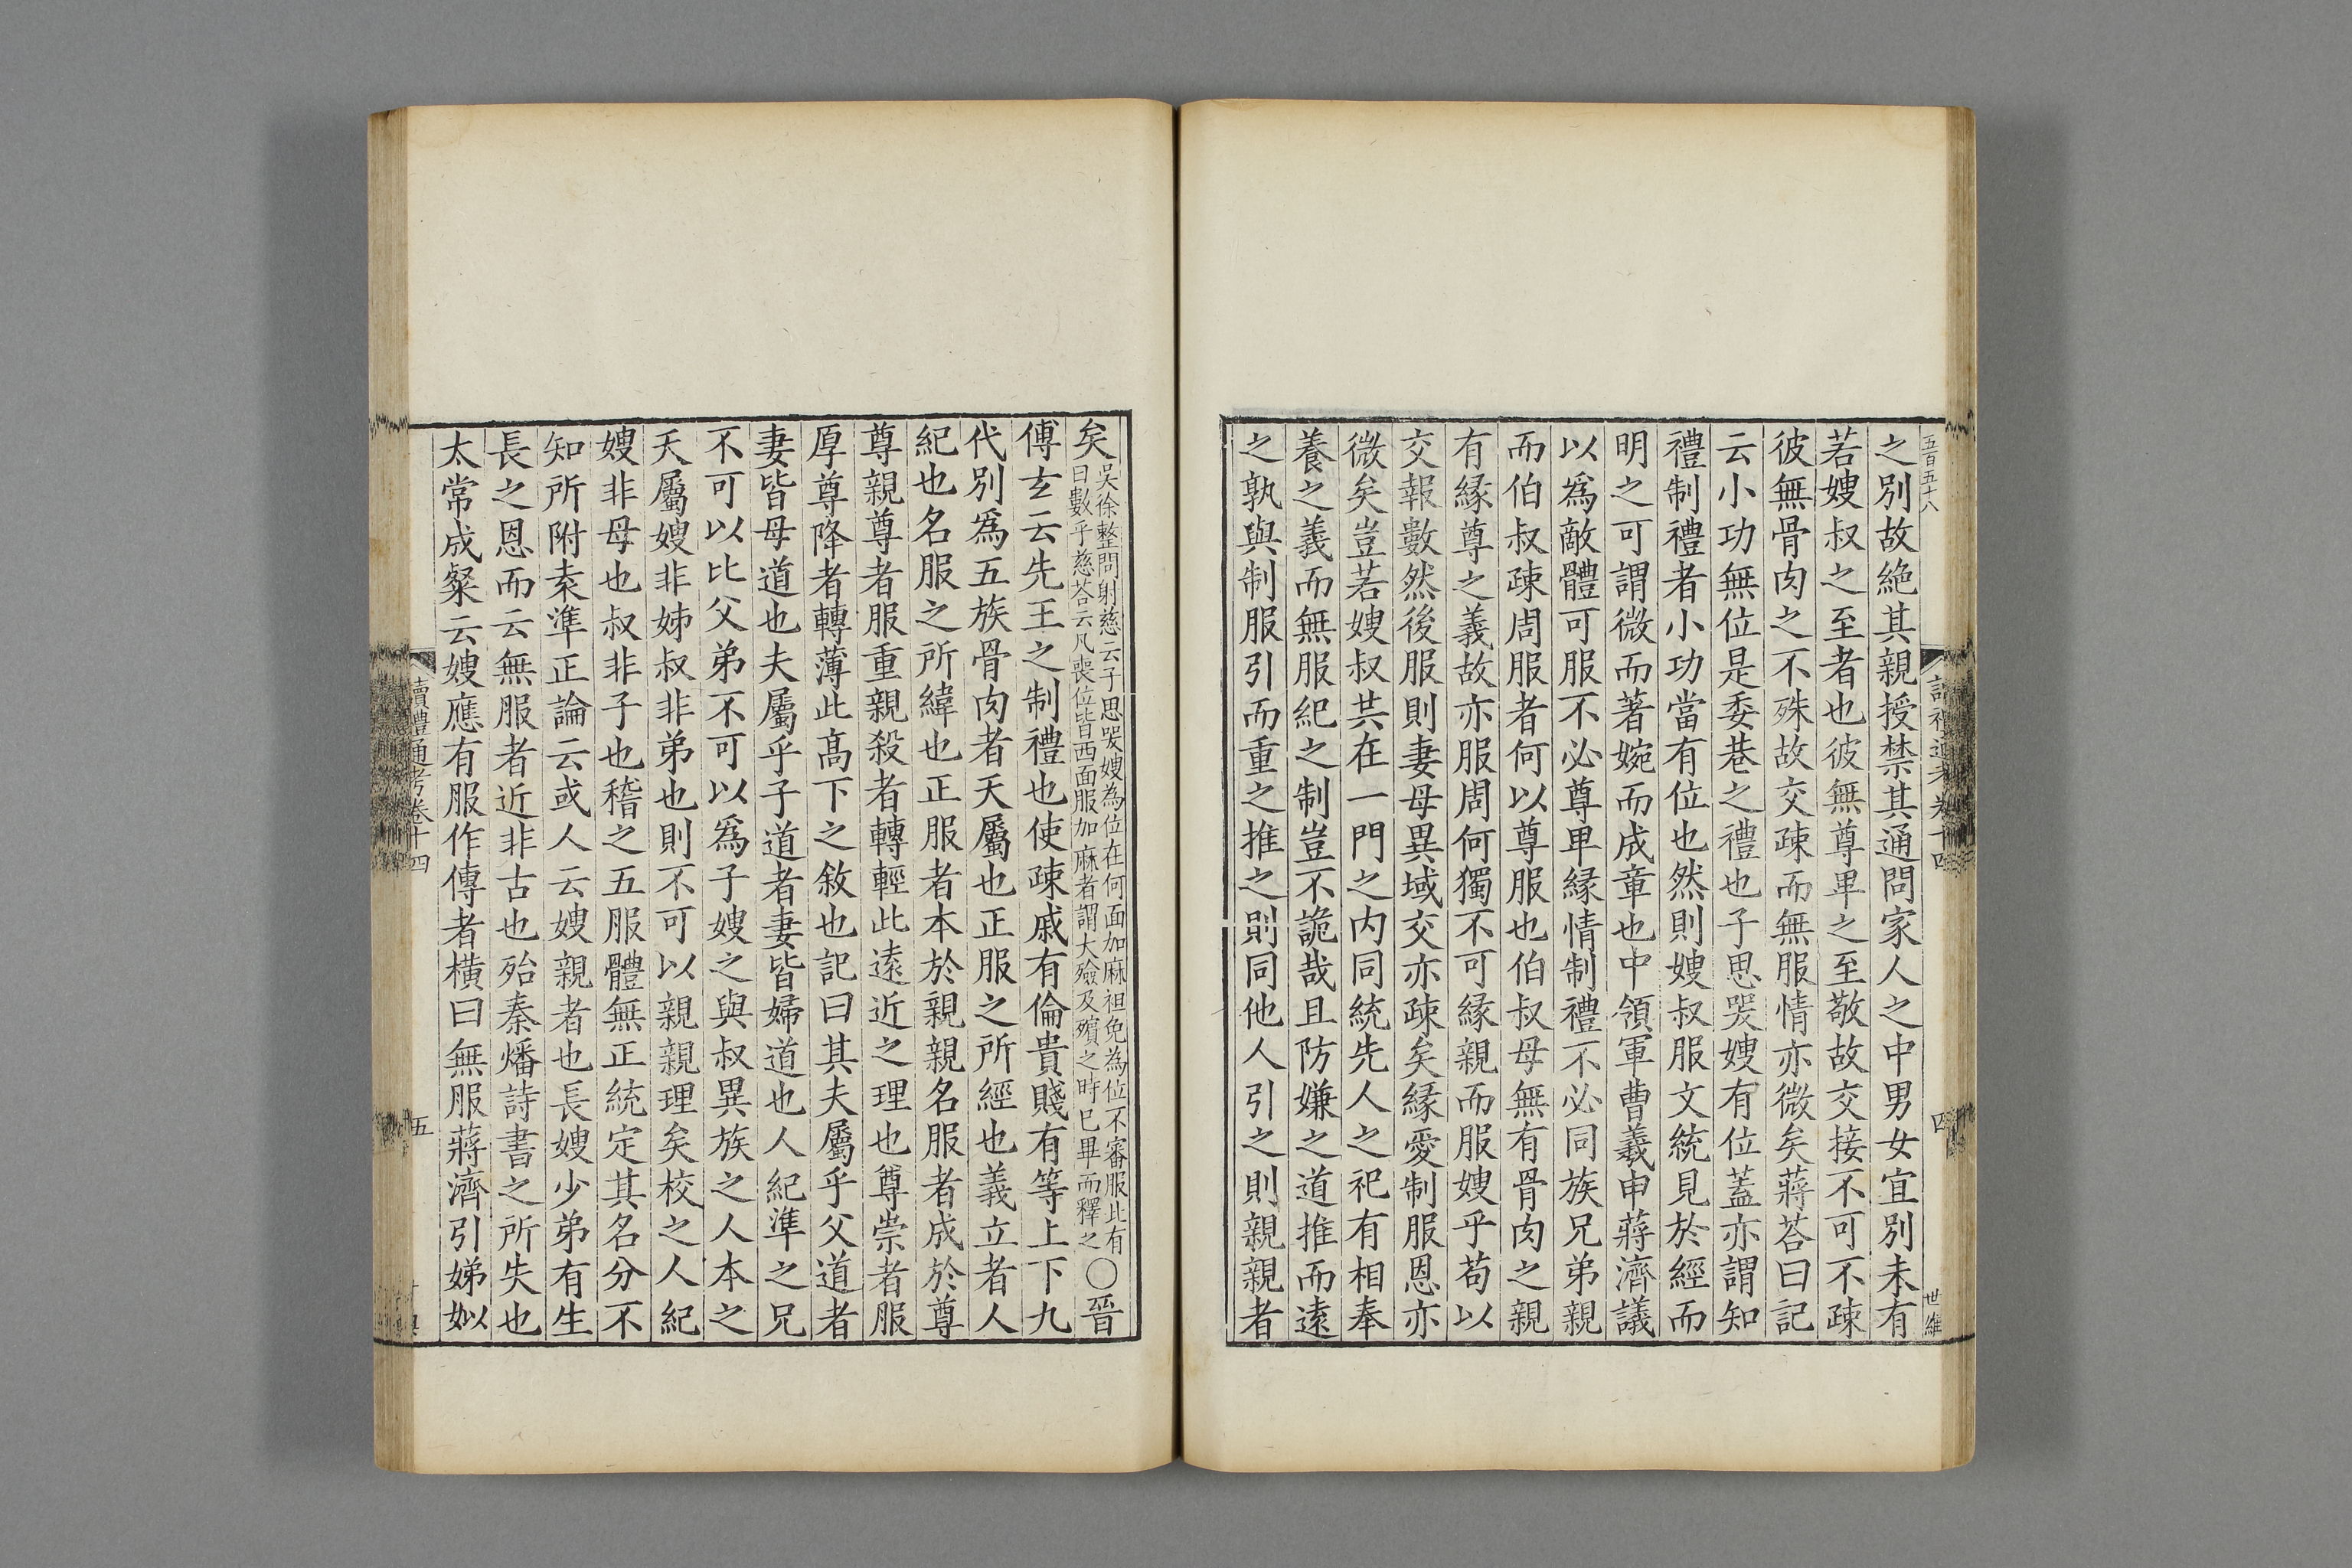 五百五十八
之別故絶其親授禁其通問家人之中男女宜別未有
若嫂叔之至者也彼無尊卑之至敬故交接不可不疎
彼無骨肉之不殊故交疎而無服情亦微矣蔣荅曰記
云小功無位是委巷之禮也子思哭嫂有位蓋亦謂知
禮制禮者小功當有位也然則嫂叔服文統見於經而
明之可謂微而著婉而成章也中領軍曹羲申蔣濟議
以爲敵體可服不必尊卑緣情制禮不必同族兄弟親
而伯叔疎周服者何以尊服也伯叔母無有骨肉之親
有緣尊之義故亦服周何獨不可緣親而服嫂乎苟以
交報數然後服則妻母異域交亦疎矣緣愛制服恩亦
微矣豈若嫂叔共在一門之内同統先人之祀有相奉
養之義而無服紀之制豈不詭哉且防嫌之道推而遠
之孰與制服引而重之推之則同他人引之則親親者
四
世維
矣吳徐整問射慈云子思哭嫂為位在何面加麻袒免為位不審服此有
日數乎慈荅云凡喪位皆西面服加麻者謂大殮及殯之時已畢而釋之〇晉
傅玄云先王之制禮也使疎戚有倫貴賤有等上下九
代別爲五族骨肉者天屬也正服之所經也義立者人
紀也名服之所緯也正服者本於親親名服者成於尊
尊親尊尊者服重親殺者轉輕此逺近之理也尊崇者服
厚尊降者轉薄此高下之敘也記曰其夫屬乎父道者
妻皆母道也夫屬乎子道者妻皆婦道也人紀準之兄
不可以比父弟不可以爲子嫂之與叔異族之人本之
天屬嫂非姊叔非弟也則不可以親親理矣校之人紀
嫂非母也叔非子也稽之五服體無正統定其名分不
知所附袁準正論云或人云嫂親者也長嫂少弟有生
長之恩而云無服者近非古也殆秦燔詩書之所失也
太常成粲云嫂應有服作傳者橫曰無服蔣濟引娣姒
讀禮通考卷十四
五